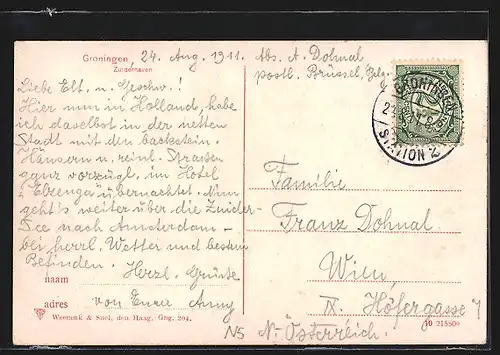 Groningen, 24. Aug. 1911. Abs. A. Dohnal
Zuiderhaven
postl. Brüssel, Belg.
Liebe Elt. u. Geschw.!
Hier nun in Holland, habe
ich daselbst in der netten
Stadt mit den backstein.
Häusern u. reinl. Straßen
ganz vorzügl. im Hotel
übernachtet. Nun
geht's weiter über die Zuider-
See nach Amsterdam -
bei herrl. Wetter und bestem
Befinden. Herzl. Grüße
naam
adres von Eurer
Weenenk & Snel, den Haag. Gng. 204.
GRONINGEN
STATION 2
Familie
Franz Dohnal
Wien
IX. Höfergasse 1
N. Österreich.
N5
10 21580